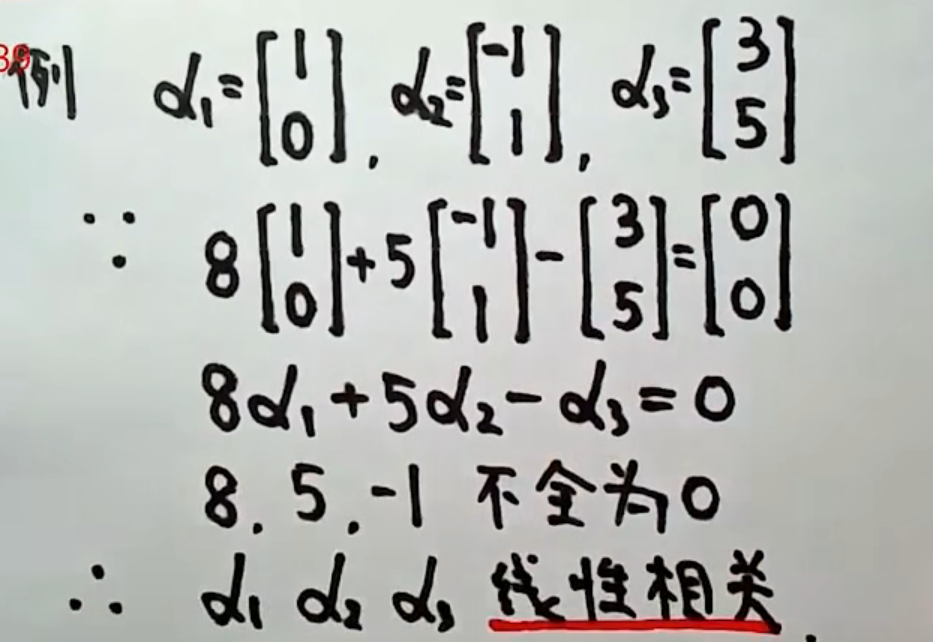 39
例 α₁=[1 0], α₂=[-1 1], α₃=[3 5]
∵ 8[1 0]+5[-1 1]-[3 5]=[0 0]
8α₁+5α₂-α₃=0
8, 5, -1 不全为0
∴ α₁ α₂ α₃ 线性相关.